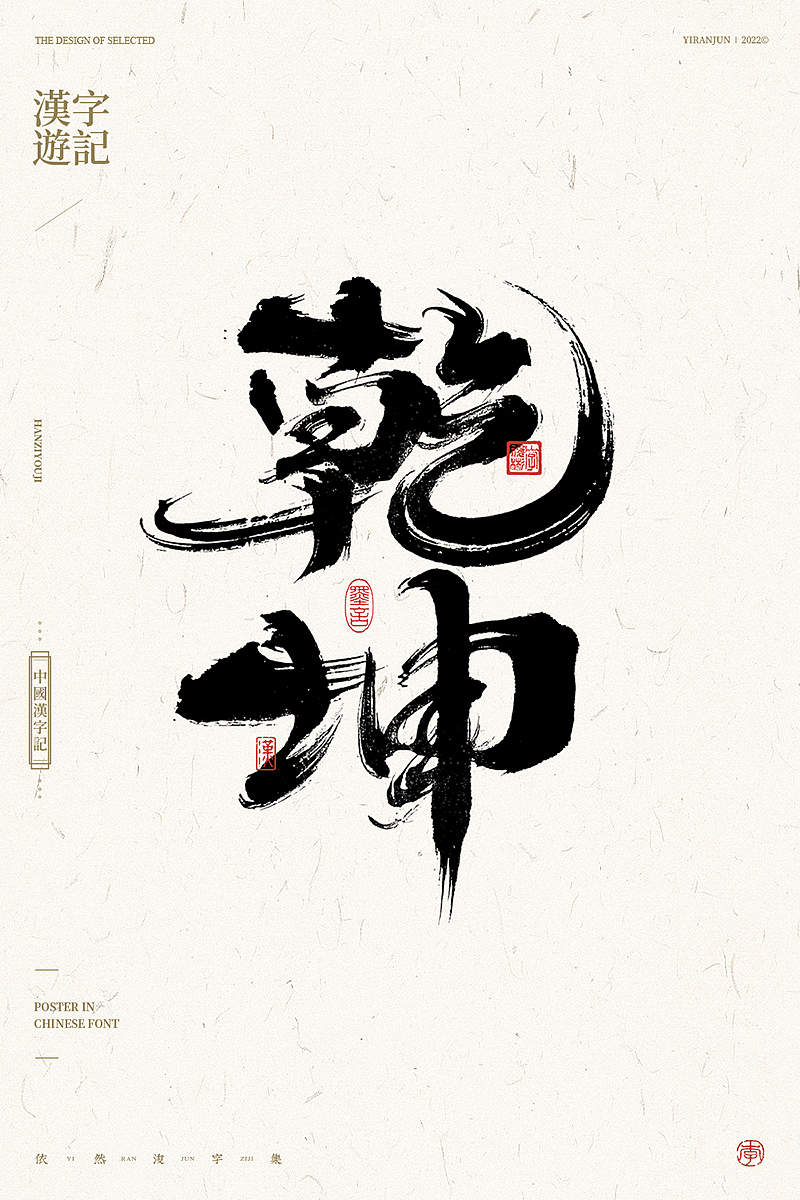 THE DESIGN OF SELECTED
YIRANJUN | 2022©
漢字
遊記
乾
坤
HANZIYOUJI
中國漢字記
POSTER IN
CHINESE FONT
依 YI 然 RAN 浚 JUN 字 ZIJI 集